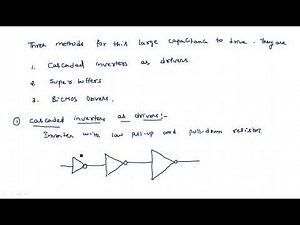 Three methods for this large capacitance to drive. They are
1. Cascaded inverters as drivers
2. Super buffers
3. BiCMOS Drivers.
① cascaded inverters as drivers:-
Inverter with low pull-up and pull-down resistor